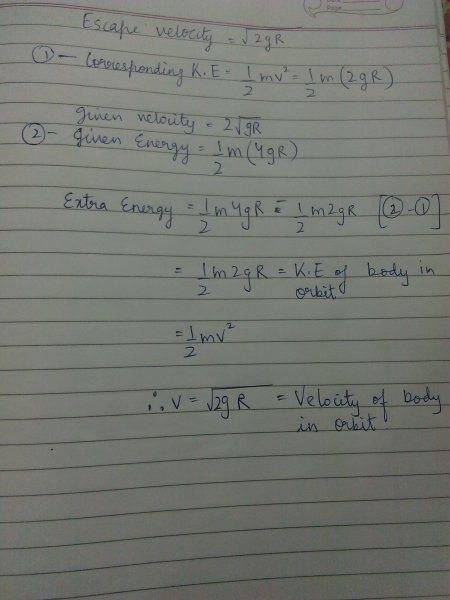 Date
Page
Escape velocity = √2gR
① — Corresponding K.E = 1/2 mv² = 1/2 m(2gR)
given velocity = 2√gR
② - Given Energy = 1/2 m(4gR)
Extra Energy = 1/2 m4gR - 1/2 m2gR [② - ①]
= 1/2 m2gR = K.E of body in
orbit
= 1/2 mv²
∴ v = √2gR = Velocity of body
in orbit